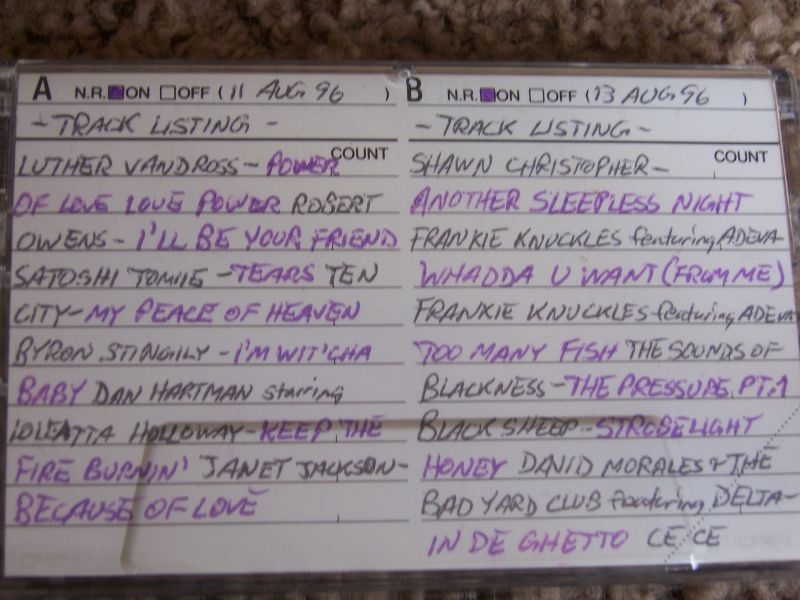 A N.R. ON OFF (11 AUG 96 )
- TRACK LISTING -
COUNT
LUTHER VANDROSS - POWER
OF LOVE LOVE POWER ROBERT
OWENS - I'LL BE YOUR FRIEND
SATOSHI TOMIIE - TEARS TEN
CITY - MY PEACE OF HEAVEN
BYRON STINGILY - I'M WIT'CHA
BABY DAN HARTMAN starring
LOLEATTA HOLLOWAY - KEEP THE
FIRE BURNIN' JANET JACKSON -
BECAUSE OF LOVE
B N.R. ON OFF (13 AUG 96 )
- TRACK LISTING -
COUNT
SHAWN CHRISTOPHER -
ANOTHER SLEEPLESS NIGHT
FRANKIE KNUCKLES featuring ADEVA
WHADDA U WANT (FROM ME)
FRANKIE KNUCKLES featuring ADEVA
TOO MANY FISH THE SOUNDS OF
BLACKNESS - THE PRESSURE PT.1
BLACK SHEEP - STROBELIGHT
HONEY DAVID MORALES & THE
BAD YARD CLUB featuring DELTA -
IN DE GHETTO CE CE